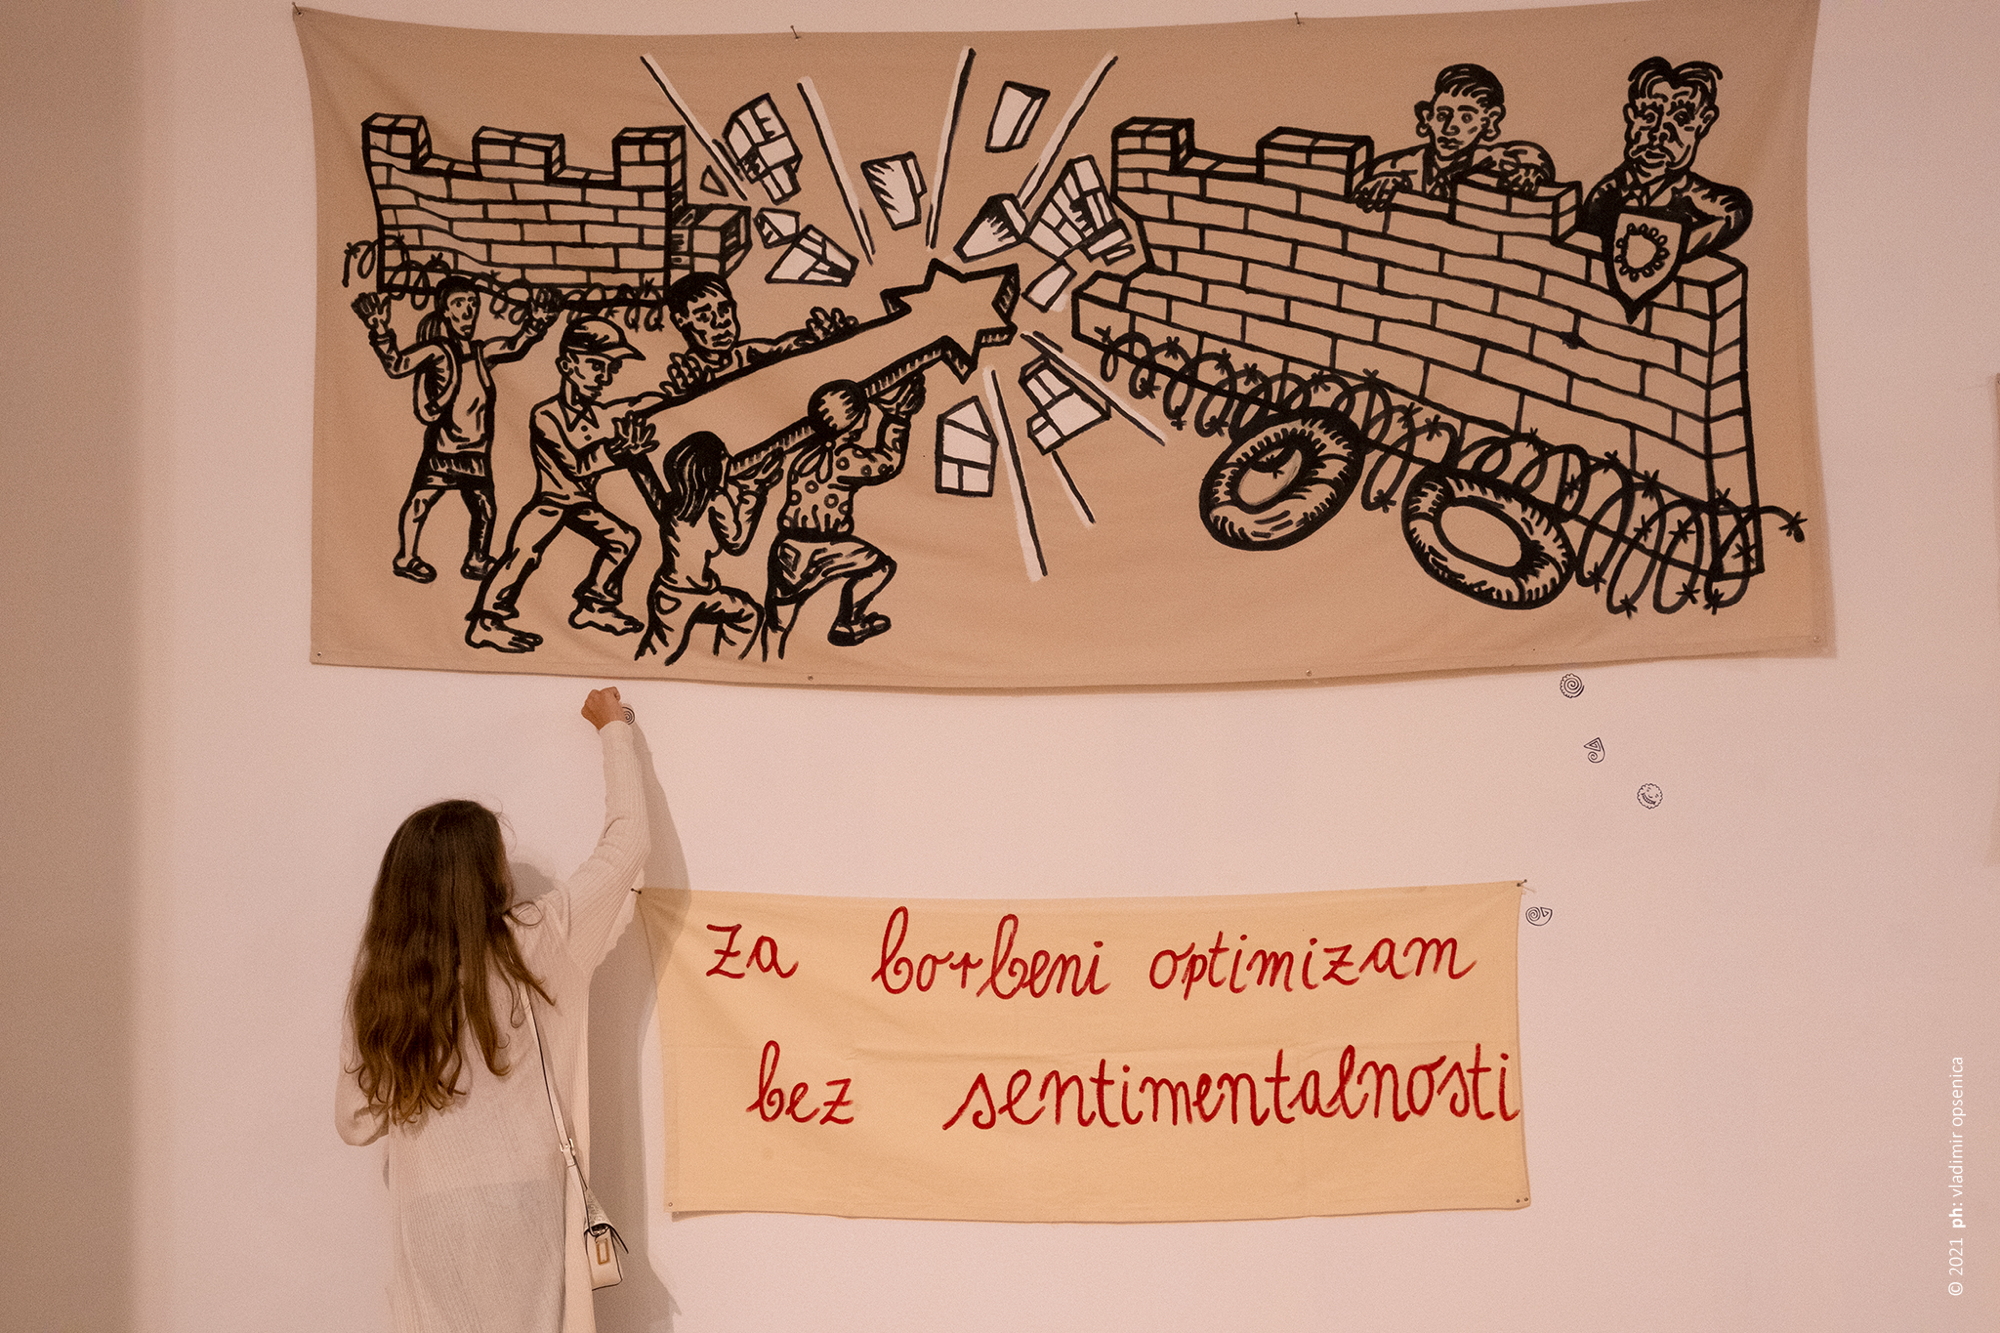 za borbeni optimizam
bez sentimentalnosti
© 2021 ph: vladimir opsenica